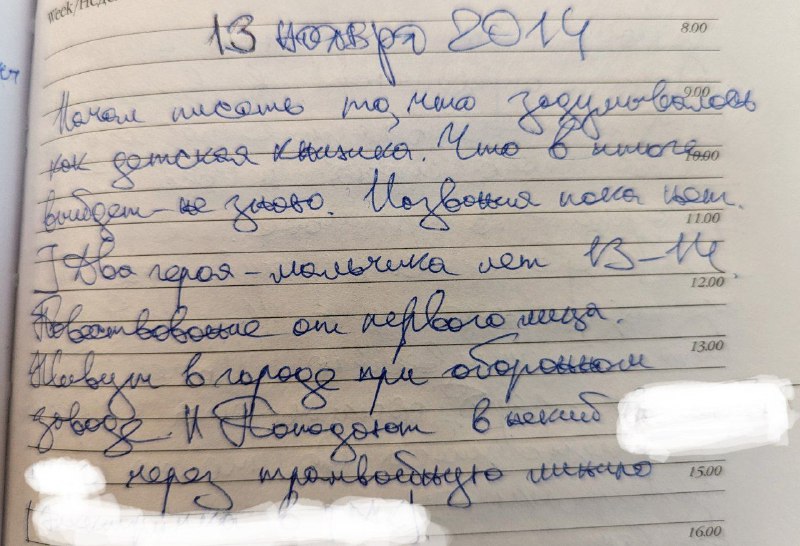 Week/Неде
8.00
13 ноября 2014
9.00
Начал писать то, что задумывалось
как детская книжка. Что в итоге
10.00
выйдет – не знаю. Названия пока нет.
11.00
Два героя – мальчика лет 13–14.
12.00
Повествование от первого лица.
13.00
Живут в городе при оборонном
заводе И Попадают в некий
через трамвайную линию
15.00
16.00